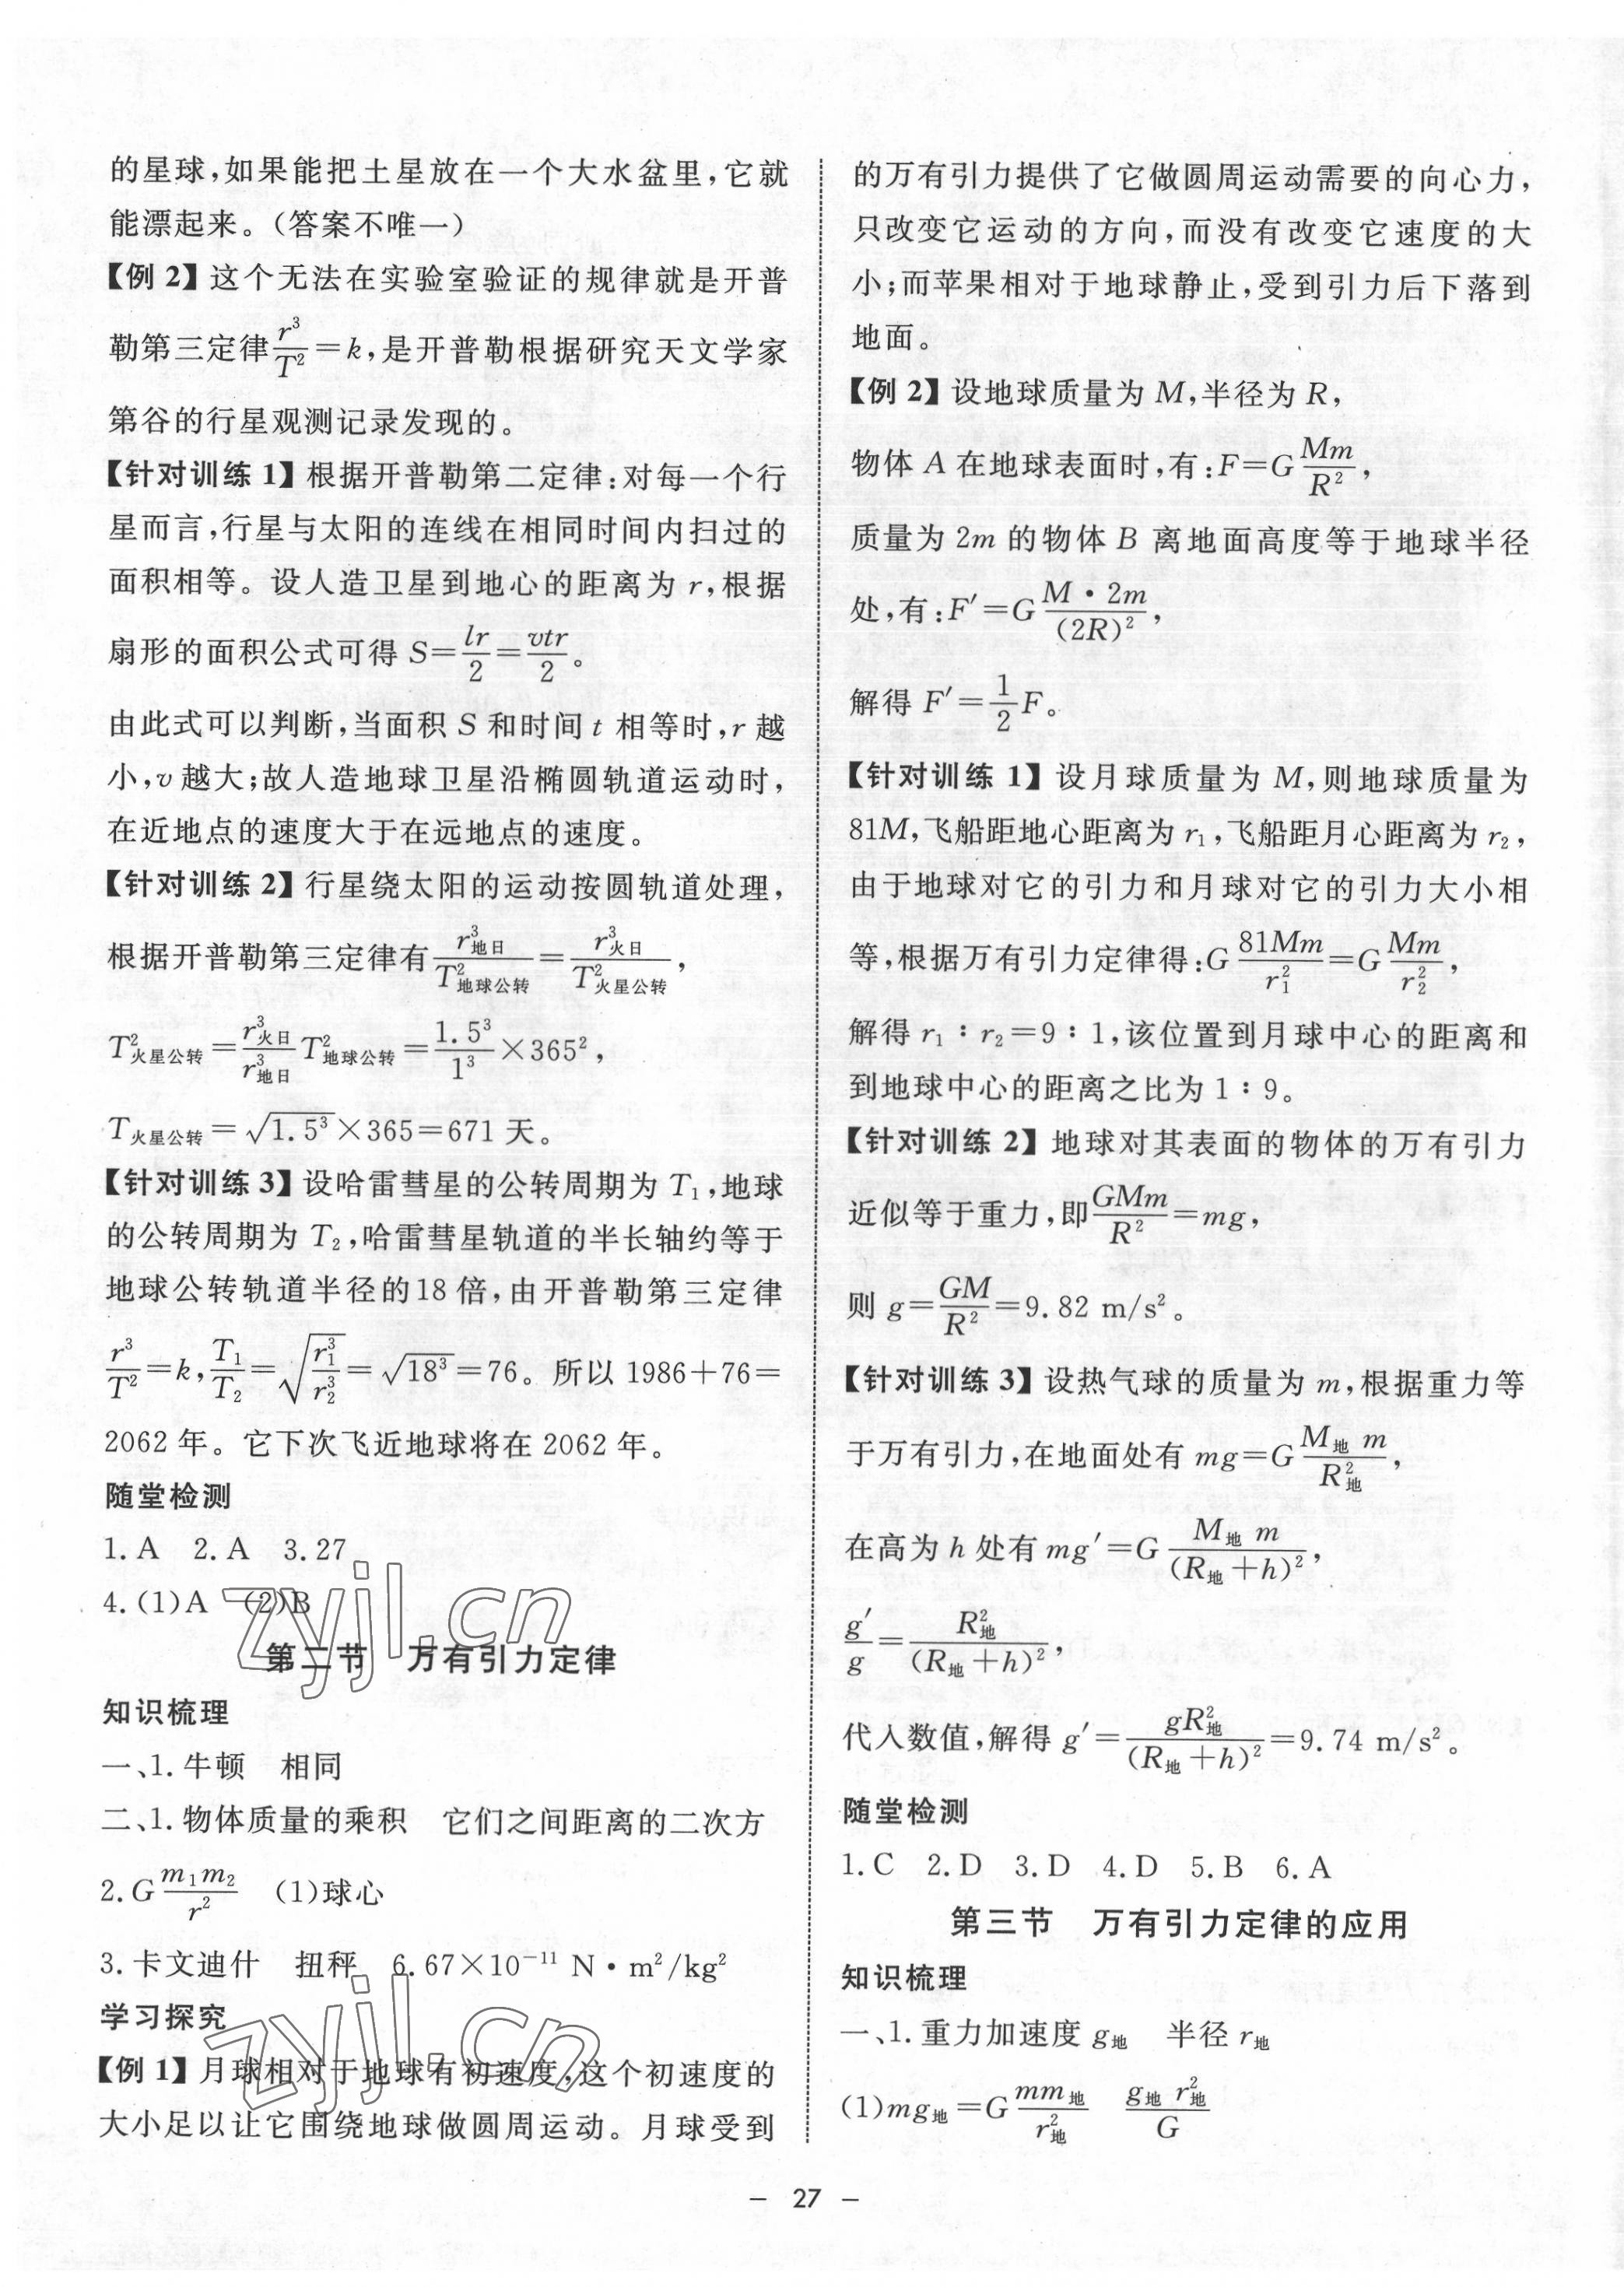 的星球,如果能把土星放在一个大水盆里,它就
能漂起来。(答案不唯一)
【例 2】这个无法在实验室验证的规律就是开普
勒第三定律r³/T²=k,是开普勒根据研究天文学家
第谷的行星观测记录发现的。
【针对训练 1】根据开普勒第二定律:对每一个行
星而言,行星与太阳的连线在相同时间内扫过的
面积相等。设人造卫星到地心的距离为 r,根据
扇形的面积公式可得 S=lr/2=vtr/2。
由此式可以判断,当面积 S 和时间 t 相等时,r 越
小,v 越大;故人造地球卫星沿椭圆轨道运动时,
在近地点的速度大于在远地点的速度。
【针对训练 2】行星绕太阳的运动按圆轨道处理,
根据开普勒第三定律有r³地日/T²地球公转=r³火日/T²火星公转,
T²火星公转=r³火日/r³地日 T²地球公转=1.5³/1³×365²,
T火星公转=√1.5³×365=671 天。
【针对训练 3】设哈雷彗星的公转周期为 T₁,地球
的公转周期为 T₂,哈雷彗星轨道的半长轴约等于
地球公转轨道半径的18 倍,由开普勒第三定律
r³/T²=k,T₁/T₂=√(r₁³/r₂³)=√18³=76。所以 1986+76=
2062 年。它下次飞近地球将在 2062 年。
随堂检测
1.A 2.A 3.27
4.(1)A (2)B
第二节 万有引力定律
知识梳理
一、1.牛顿 相同
二、1.物体质量的乘积 它们之间距离的二次方
2.G m₁m₂/r² (1)球心
3.卡文迪什 扭秤 6.67×10⁻¹¹ N·m²/kg²
学习探究
【例 1】月球相对于地球有初速度,这个初速度的
大小足以让它围绕地球做圆周运动。月球受到
的万有引力提供了它做圆周运动需要的向心力,
只改变它运动的方向,而没有改变它速度的大
小;而苹果相对于地球静止,受到引力后下落到
地面。
【例 2】设地球质量为 M,半径为 R,
物体 A 在地球表面时,有:F=G Mm/R²,
质量为 2m 的物体 B 离地面高度等于地球半径
处,有:F′=G M·2m/(2R)²,
解得 F′=1/2 F。
【针对训练 1】设月球质量为 M,则地球质量为
81M,飞船距地心距离为 r₁,飞船距月心距离为 r₂,
由于地球对它的引力和月球对它的引力大小相
等,根据万有引力定律得:G 81Mm/r₁²=G Mm/r₂²,
解得 r₁∶r₂=9∶1,该位置到月球中心的距离和
到地球中心的距离之比为 1∶9。
【针对训练 2】地球对其表面的物体的万有引力
近似等于重力,即GMm/R²=mg,
则 g=GM/R²=9.82 m/s²。
【针对训练 3】设热气球的质量为 m,根据重力等
于万有引力,在地面处有 mg=G M地 m/R²地,
在高为 h 处有 mg′=G M地 m/(R地+h)²,
g′/g=R²地/(R地+h)²,
代入数值,解得 g′=gR²地/(R地+h)²=9.74 m/s²。
随堂检测
1.C 2.D 3.D 4.D 5.B 6.A
第三节 万有引力定律的应用
知识梳理
一、1.重力加速度 g地 半径 r地
(1)mg地=G mm地/r²地 g地 r²地/G
— 27 —
zyjl.cn
zyjl.cn